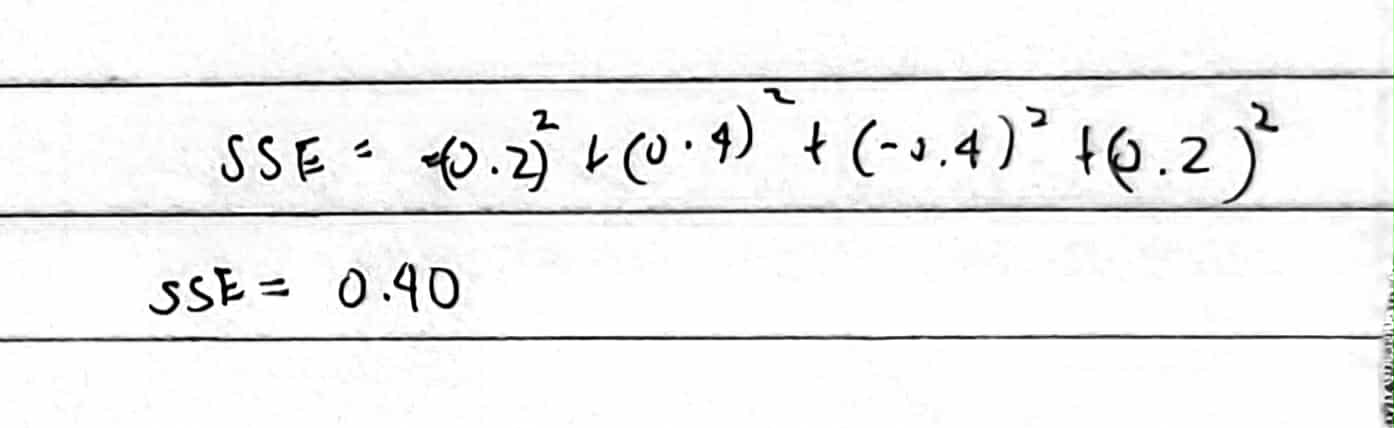 SSE = (0.2)² + (0.4)² + (-0.4)² + (0.2)²
SSE = 0.40